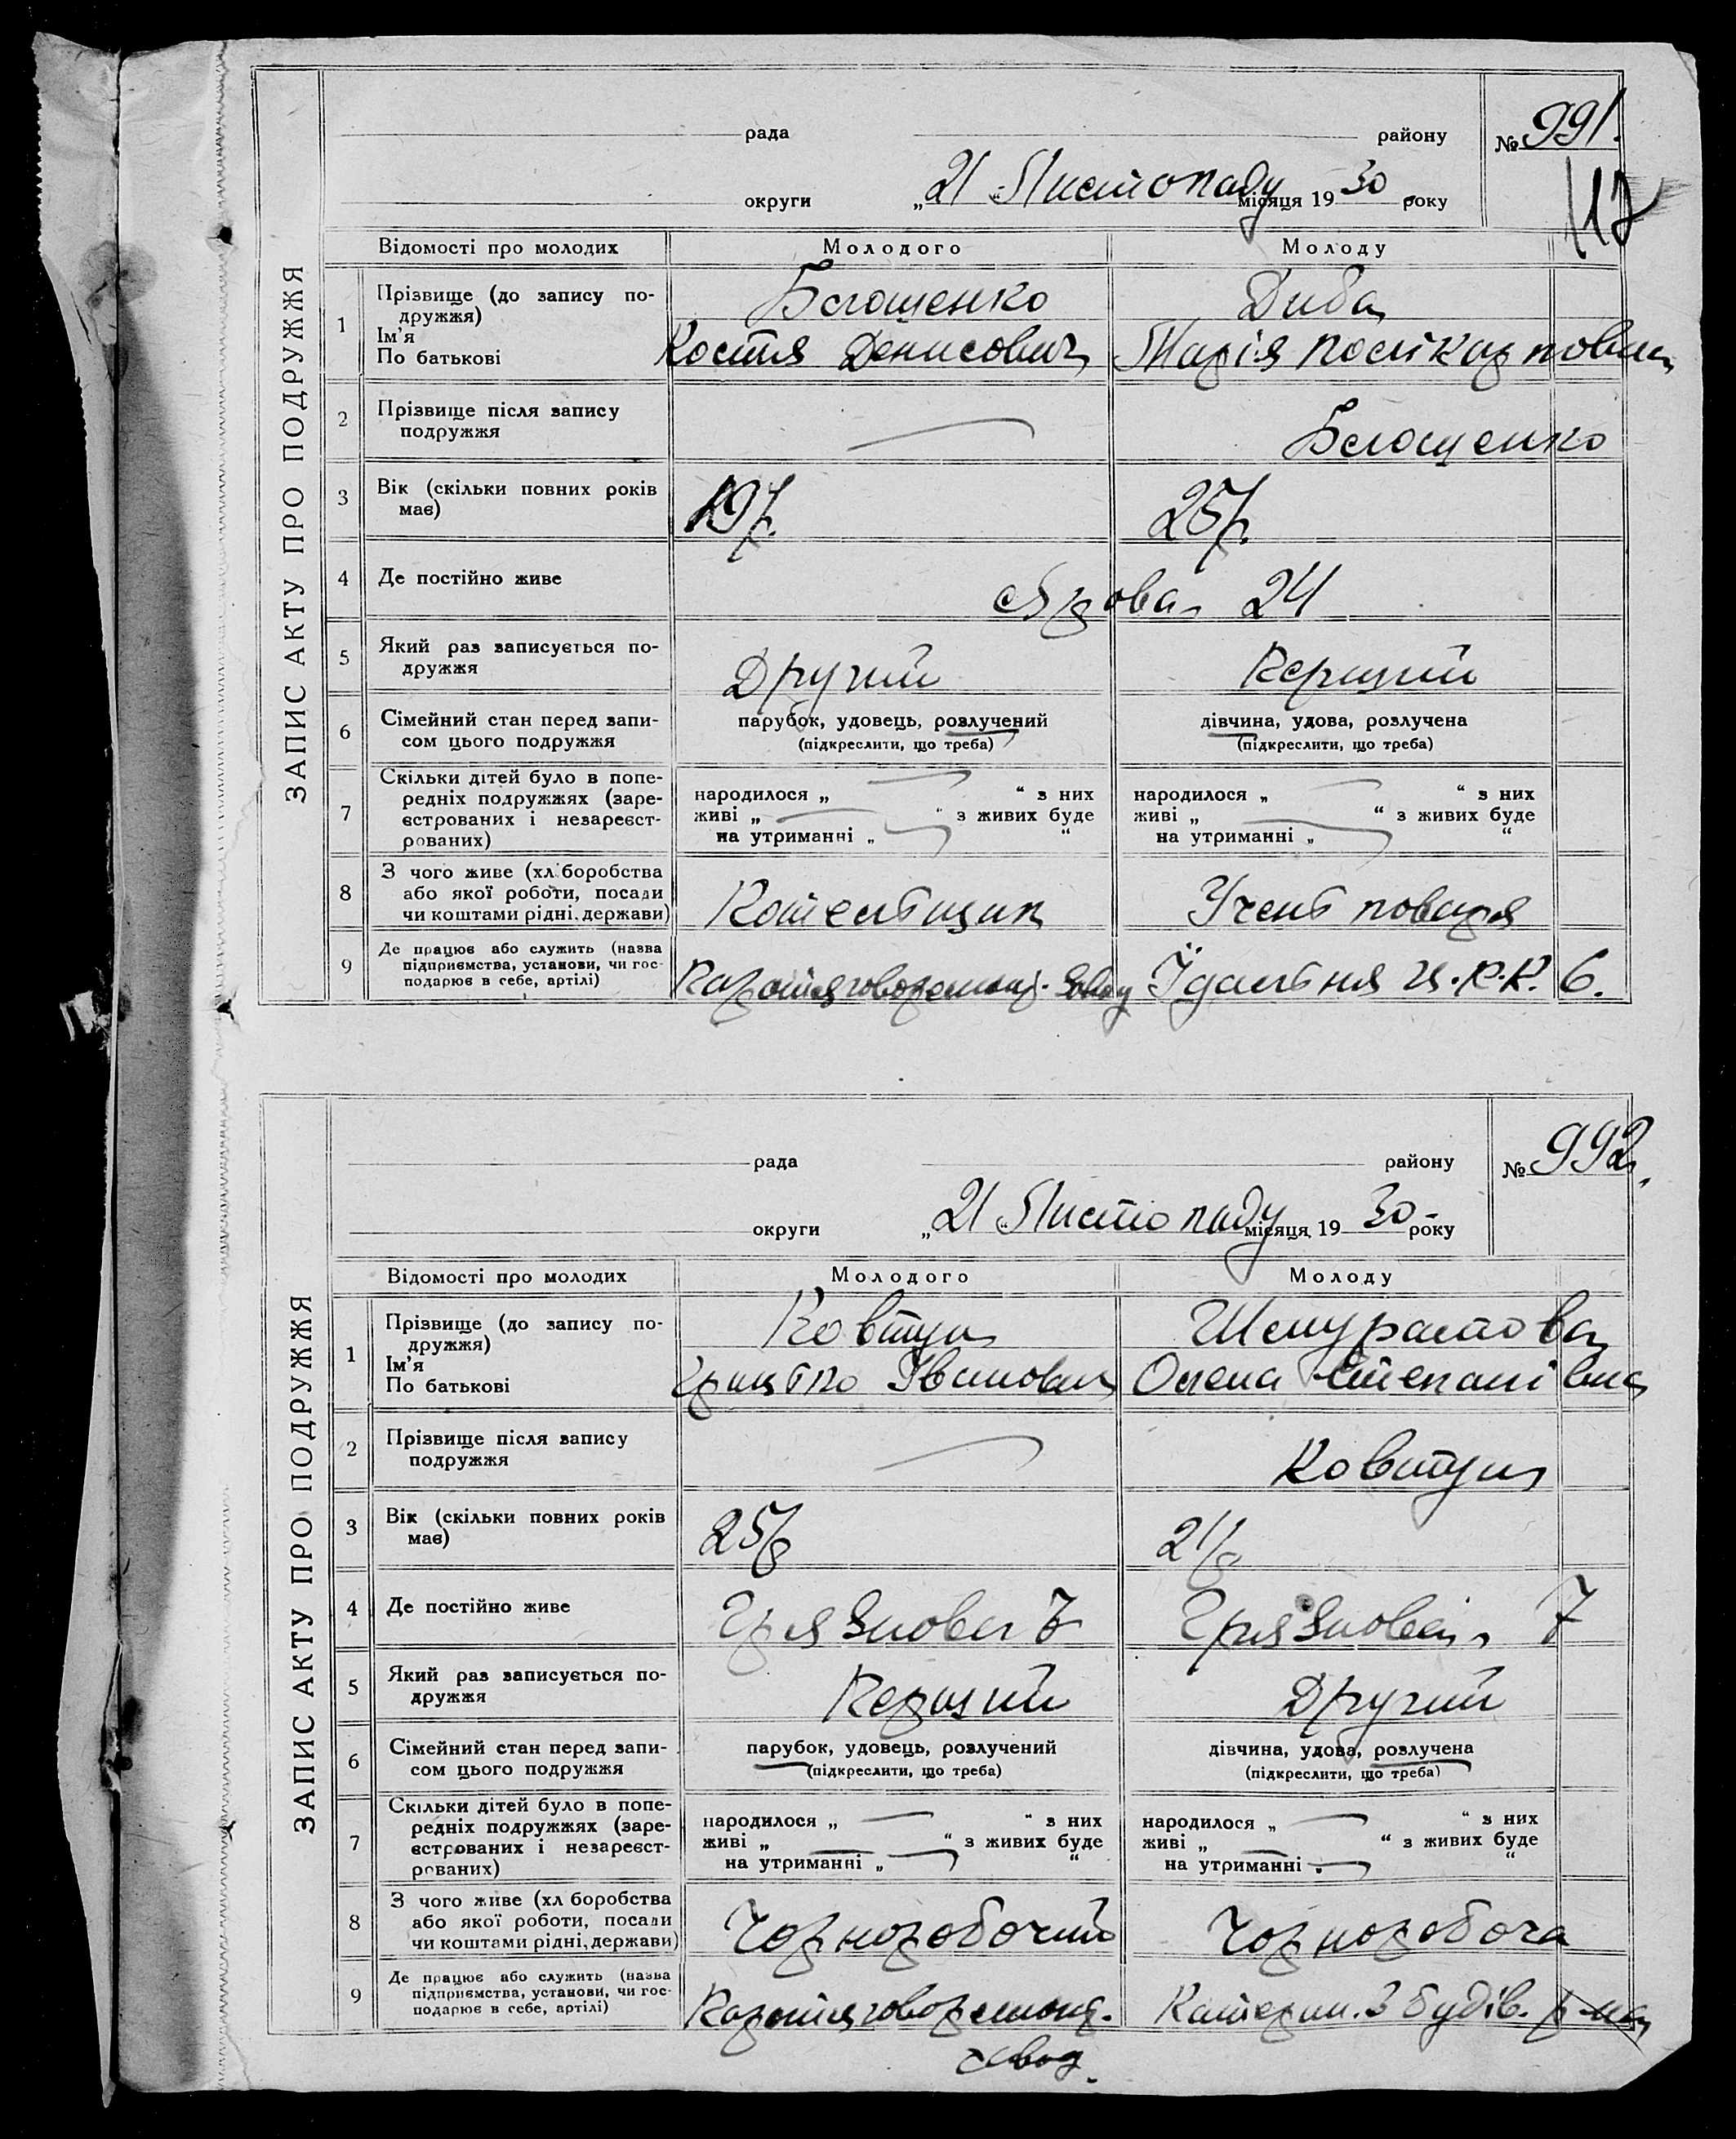 ЗАПИС АКТУ ПРО ПОДРУЖЖЯ
рада району № 991.
округи „21 Листопаду місяця 1930 року
117
Відомості про молодих Молодого Молоду
1 Прізвище (до запису по-
дружжя)
Ім'я
По батькові
Диба
Костя Денисович Марія Полікарповна
2 Прізвище після запису
подружжя
3 Вік (скільки повних років
має)
19 р. 25 р.
4 Де постійно живе
24
5 Який раз записується по-
дружжя
Другий Перший
6 Сімейний стан перед запи-
сом цього подружжя
парубок, удовець, розлучений дівчина, удова, розлучена
(підкреслити, що треба) (підкреслити, що треба)
7 Скільки дітей було в попе-
редніх подружжях (заре-
єстрованих і незареєст-
рованих)
народилося „ “ з них народилося „ “ з них
живі „ “ з живих буде живі „ “ з живих буде
на утриманні „ “ на утриманні „ “
8 З чого живе (хліборобства
або якої роботи, посади
чи коштами рідні, держави)
Учень поваря
9 Де працює або служить (назва
підприємства, установи, чи гос-
подарює в себе, артілі)
Паротяговоремонт. завод Їдальня Ц.Р.К. 6.
ЗАПИС АКТУ ПРО ПОДРУЖЖЯ
рада району № 992.
округи „21 Листопаду місяця 1930 року
Відомості про молодих Молодого Молоду
1 Прізвище (до запису по-
дружжя)
Ім'я
По батькові
Ковтун
Грицько Іванович Олена Степанівна
2 Прізвище після запису
подружжя
Ковтун
3 Вік (скільки повних років
має)
25 р 21 р
4 Де постійно живе
Грязнова 7 Грязнова 7
5 Який раз записується по-
дружжя
Перший Другий
6 Сімейний стан перед запи-
сом цього подружжя
парубок, удовець, розлучений дівчина, удова, розлучена
(підкреслити, що треба) (підкреслити, що треба)
7 Скільки дітей було в попе-
редніх подружжях (заре-
єстрованих і незареєст-
рованих)
народилося „ “ з них народилося „ “ з них
живі „ “ з живих буде живі „ “ з живих буде
на утриманні „ “ на утриманні „ “
8 З чого живе (хліборобства
або якої роботи, посади
чи коштами рідні, держави)
Чорноробочий Чорноробоча
9 Де працює або служить (назва
підприємства, установи, чи гос-
подарює в себе, артілі)
Паротяговоремонт. Катерин. З будів.
завод.